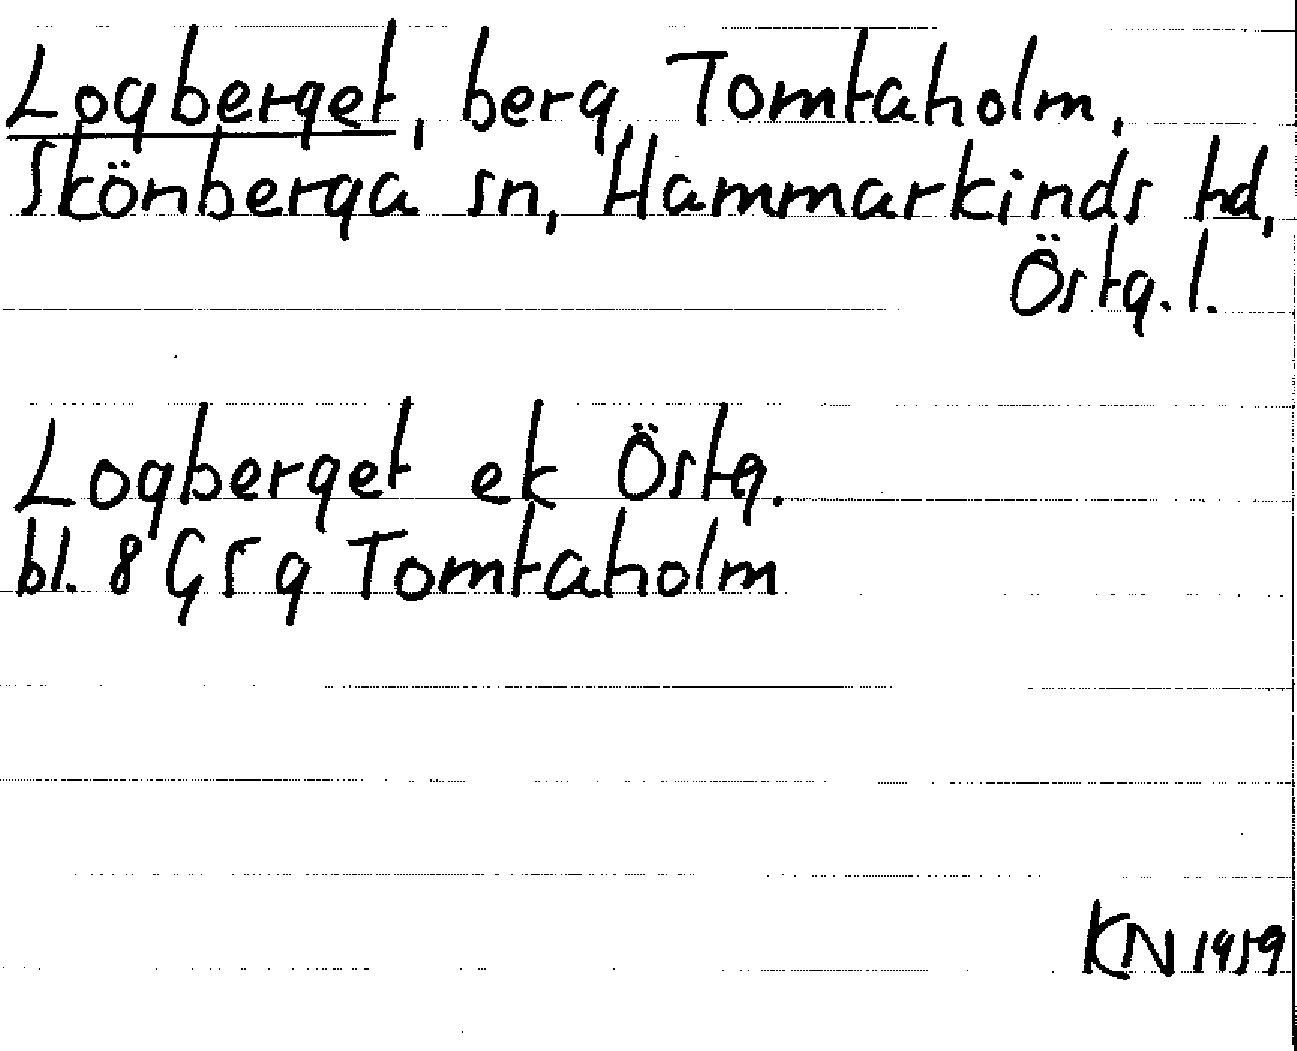 Logberget, berg, Tomtaholm,
Skönberga sn, Hammarkinds hd,
Östg. l.
Logberget ek Östg.
bl. 8 G S g Tomtaholm
KN 1959